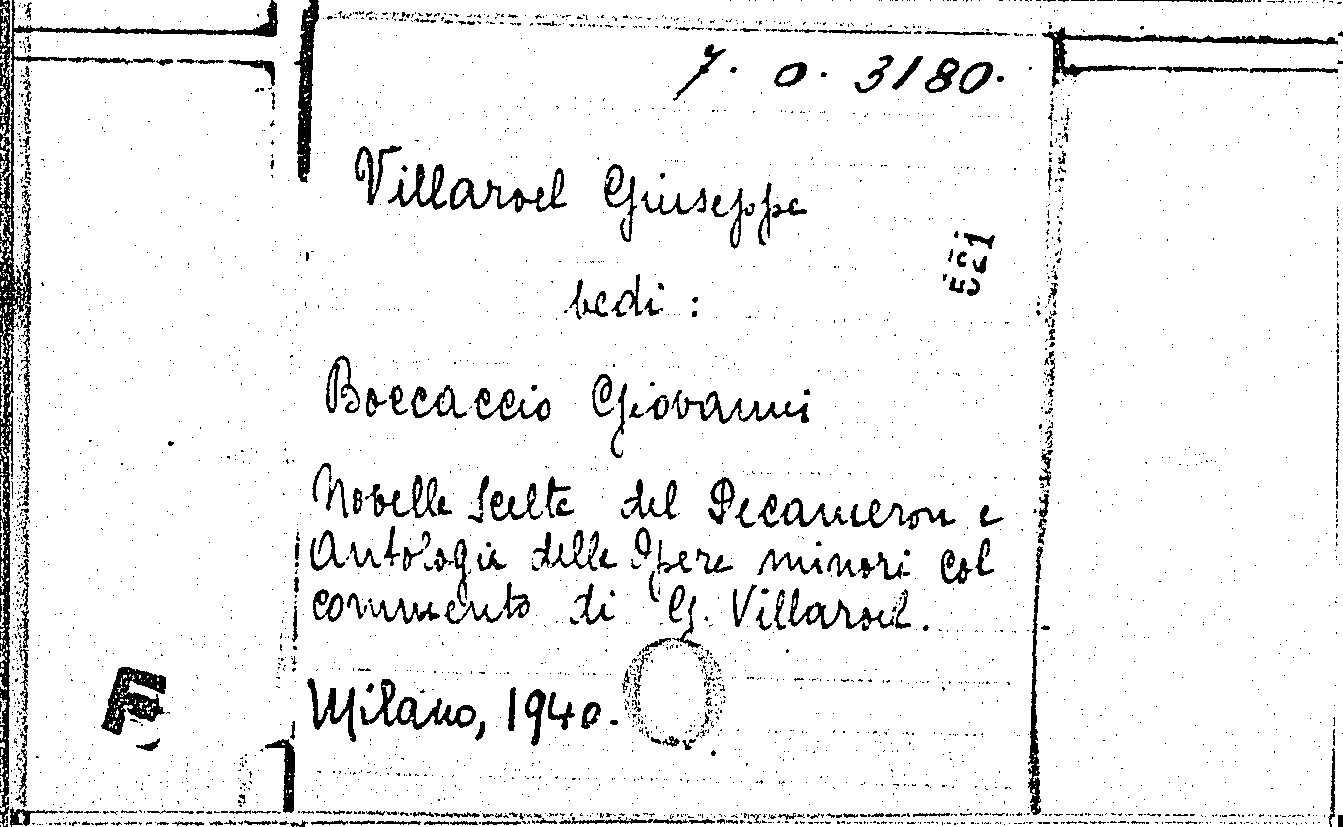 7. O. 3180.
Villaroel Giuseppe
vedi :
Boccaccio Giovanni
Novelle scelte del Decameron e
Antologia delle Opere minori col
commento di G. Villaroel.
Milano, 1940.